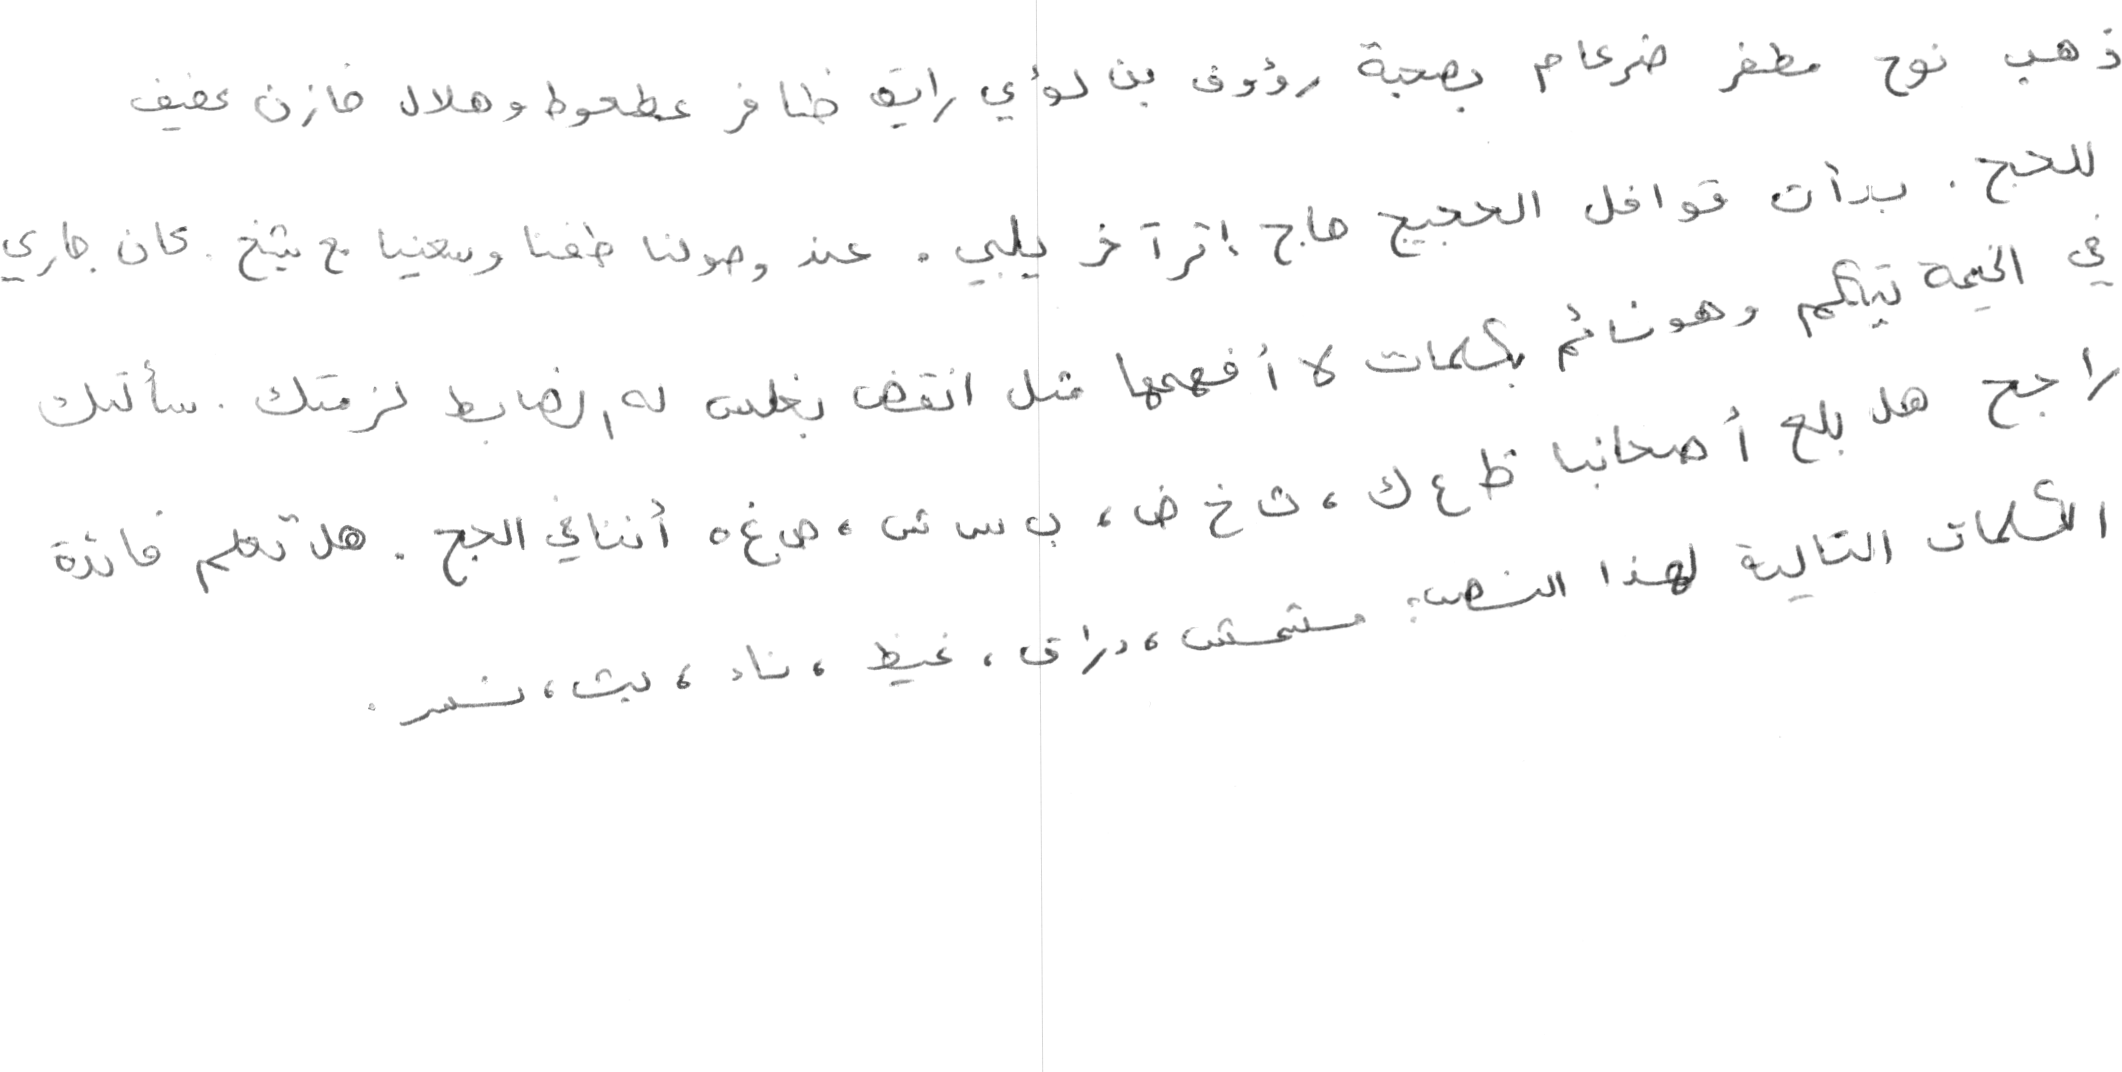 ذهب نوح مظفر ضرغام بصحبة رؤوف بن لؤي رايق ظافر عطعوط وهلال خازن عفيف
للحج. بدأت قوافل الحجيج حاج إثر آخر يلبي. عند وصولنا طفنا وسعينا مع شيخ. كان جاري
في الخيمة يتكلم وهو نائم بكلمات لا أفهمها مثل انقض بخلس له الضابط لزمتك. سألتك
راجح هل بلغ أصحابنا ظ ع ك، ث خ ض، ب س ش، ص غ ه أننا في الحج. هل تعلم فائدة
الكلمات التالية لهذا النص: مشمش، دراق، غيظ، ناء، بث، نسر.